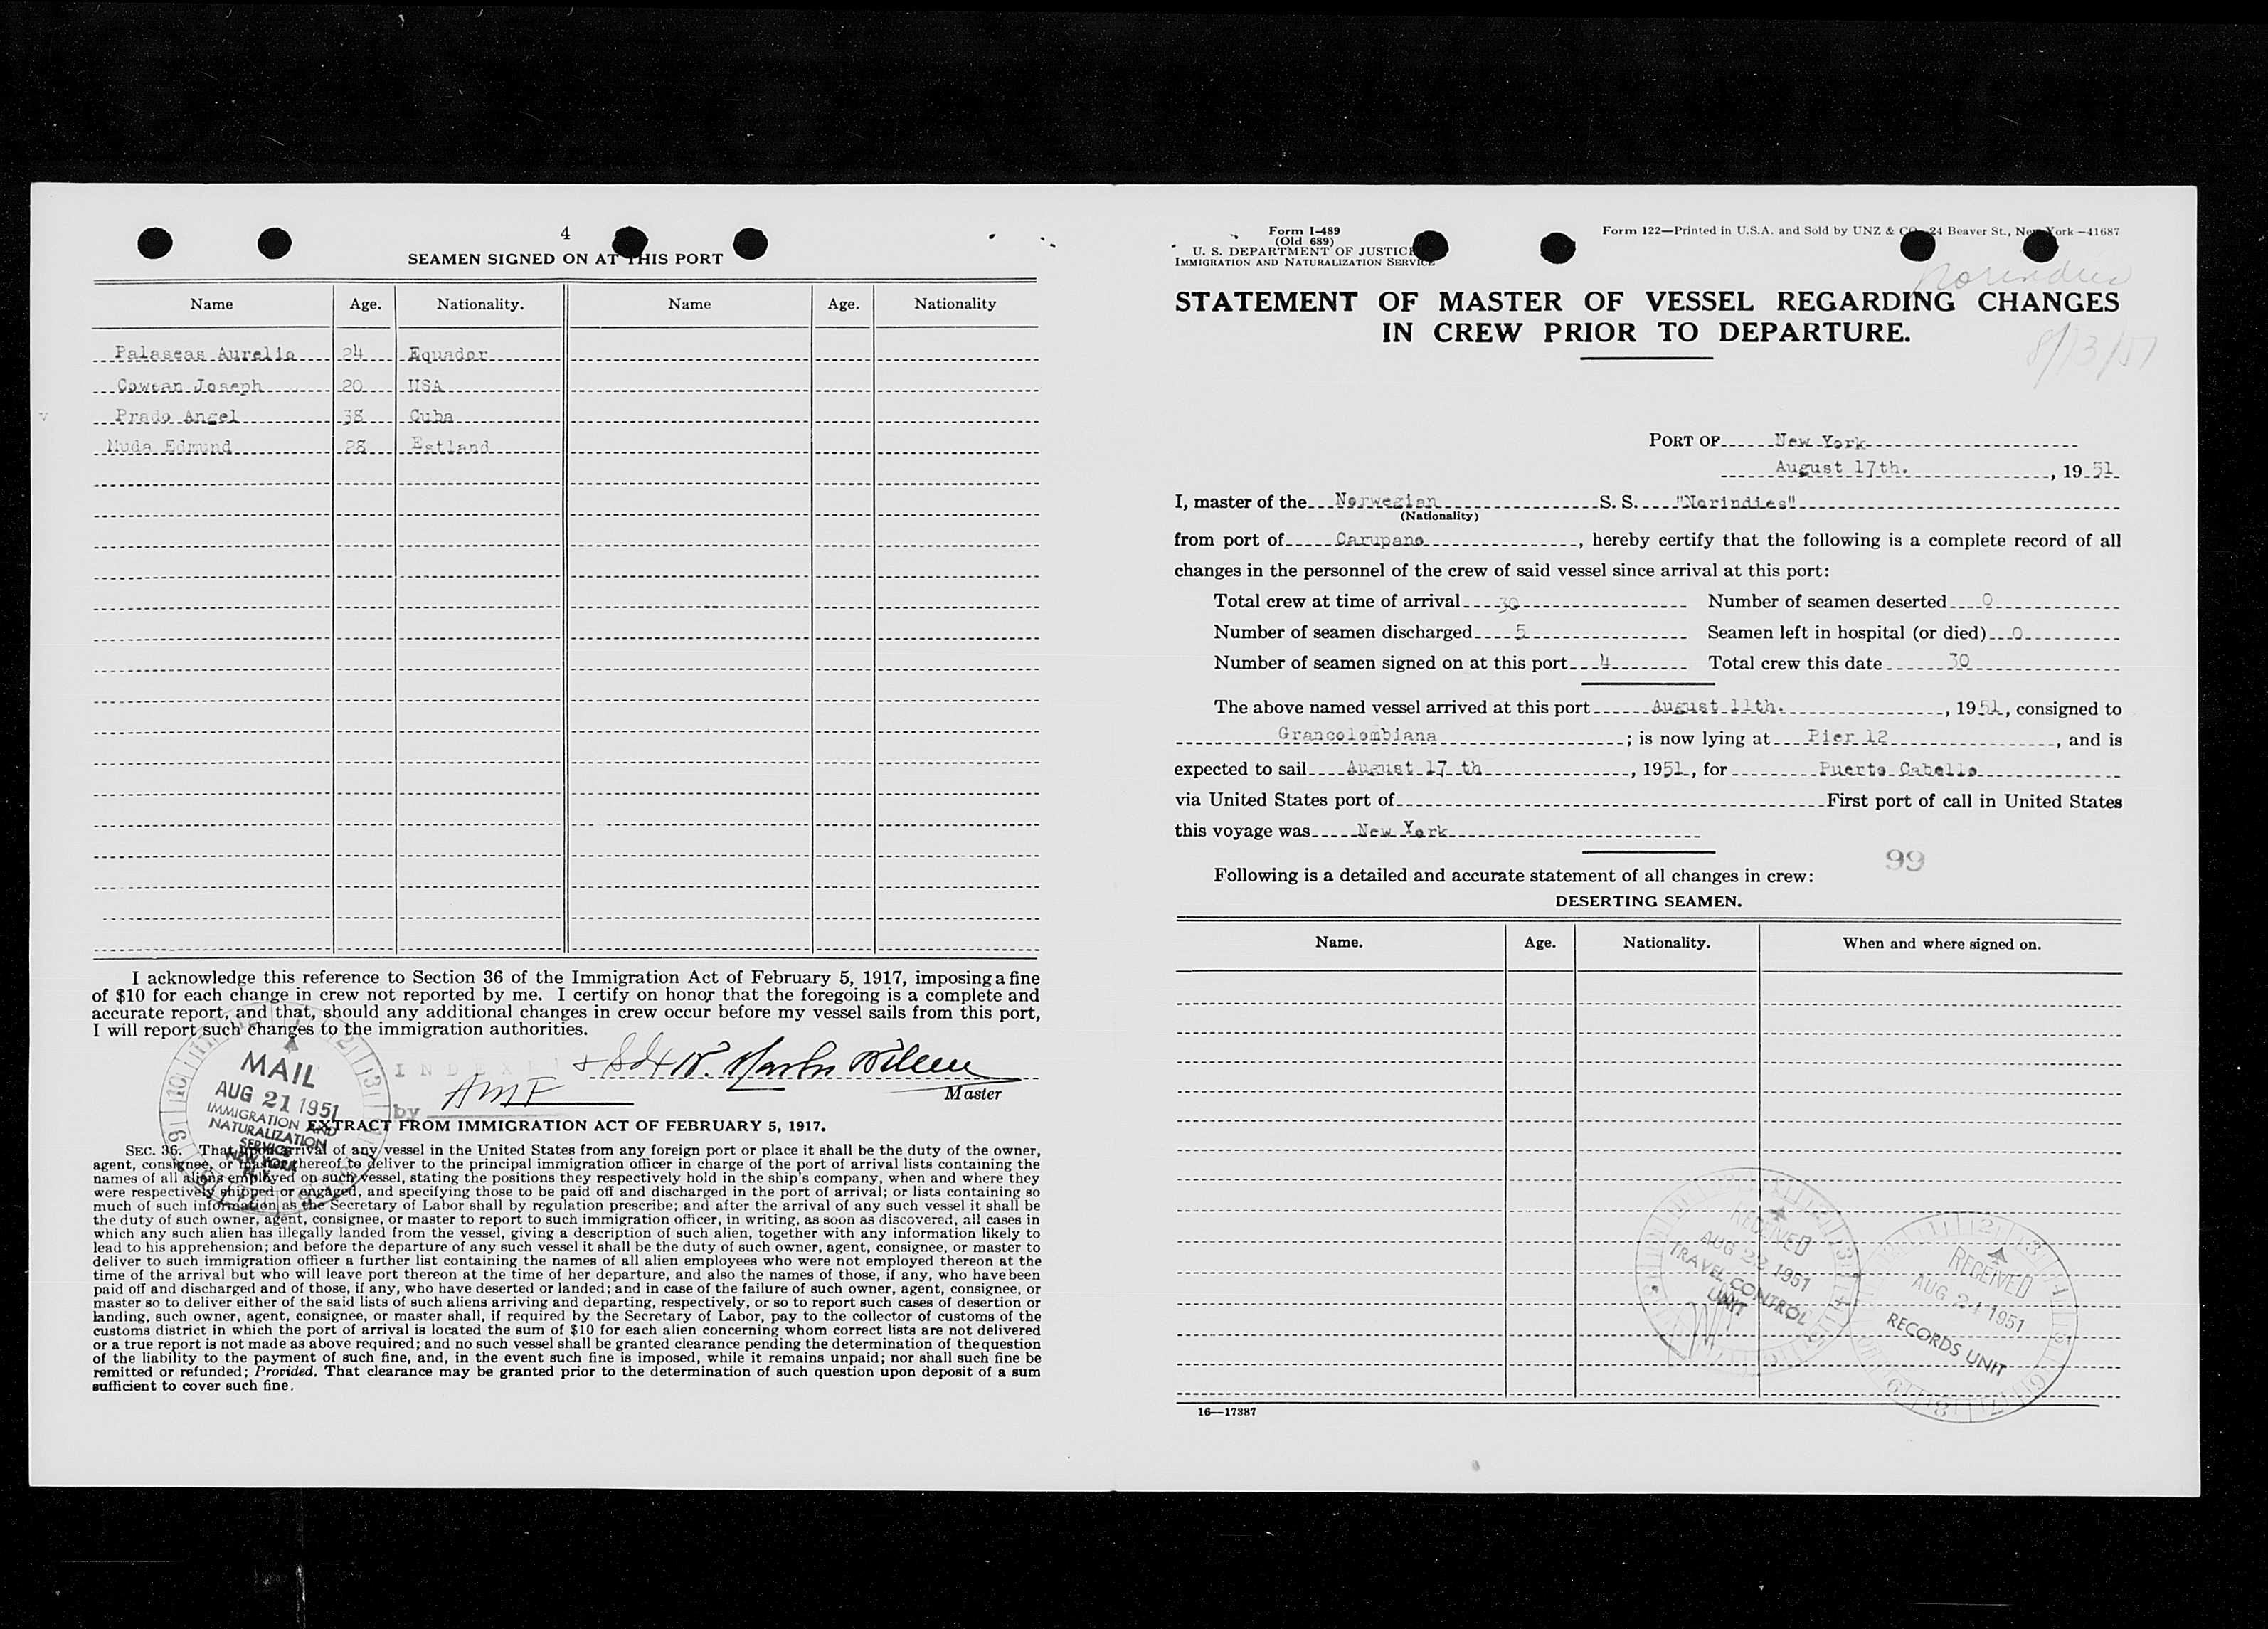 4
SEAMEN SIGNED ON AT THIS PORT
Name Age. Nationality. Name Age. Nationality
Palaseas Aurelio 24 Equador
Cowean Joseph 20 USA
Prado Angel 38 Cuba
Muda Edmund 28 Estland
I acknowledge this reference to Section 36 of the Immigration Act of February 5, 1917, imposing a fine
of $10 for each change in crew not reported by me. I certify on honor that the foregoing is a complete and
accurate report, and that, should any additional changes in crew occur before my vessel sails from this port,
I will report such changes to the immigration authorities.
MAIL
AUG 21 1951
IMMIGRATION AND
NATURALIZATION
SERVICE
NEW YORK
N.Y.
by AMF
Master
EXTRACT FROM IMMIGRATION ACT OF FEBRUARY 5, 1917.
SEC. 36. That upon arrival of any vessel in the United States from any foreign port or place it shall be the duty of the owner,
agent, consignee, or master thereof to deliver to the principal immigration officer in charge of the port of arrival lists containing the
names of all aliens employed on such vessel, stating the positions they respectively hold in the ship's company, when and where they
were respectively shipped or engaged, and specifying those to be paid off and discharged in the port of arrival; or lists containing so
much of such information as the Secretary of Labor shall by regulation prescribe; and after the arrival of any such vessel it shall be
the duty of such owner, agent, consignee, or master to report to such immigration officer, in writing, as soon as discovered, all cases in
which any such alien has illegally landed from the vessel, giving a description of such alien, together with any information likely to
lead to his apprehension; and before the departure of any such vessel it shall be the duty of such owner, agent, consignee, or master to
deliver to such immigration officer a further list containing the names of all alien employees who were not employed thereon at the
time of the arrival but who will leave port thereon at the time of her departure, and also the names of those, if any, who have been
paid off and discharged and of those, if any, who have deserted or landed; and in case of the failure of such owner, agent, consignee, or
master so to deliver either of the said lists of such aliens arriving and departing, respectively, or so to report such cases of desertion or
landing, such owner, agent, consignee, or master shall, if required by the Secretary of Labor, pay to the collector of customs of the
customs district in which the port of arrival is located the sum of $10 for each alien concerning whom correct lists are not delivered
or a true report is not made as above required; and no such vessel shall be granted clearance pending the determination of the question
of the liability to the payment of such fine, and, in the event such fine is imposed, while it remains unpaid; nor shall such fine be
remitted or refunded; Provided, That clearance may be granted prior to the determination of such question upon deposit of a sum
sufficient to cover such fine.
Form I-489
(Old 689)
U. S. DEPARTMENT OF JUSTICE
IMMIGRATION AND NATURALIZATION SERVICE
Form 122—Printed in U.S.A. and Sold by UNZ & CO., 24 Beaver St., New York—41687
Norindies
STATEMENT OF MASTER OF VESSEL REGARDING CHANGES
IN CREW PRIOR TO DEPARTURE.
8/13/51
PORT OF New York
August 17th. , 19 51
I, master of the Norwegian S. S. "Norindies"
(Nationality)
from port of Carupano , hereby certify that the following is a complete record of all
changes in the personnel of the crew of said vessel since arrival at this port:
Total crew at time of arrival 30 Number of seamen deserted 0
Number of seamen discharged 5 Seamen left in hospital (or died) 0
Number of seamen signed on at this port 4 Total crew this date 30
The above named vessel arrived at this port August 11th. , 1951, consigned to
Grancolombiana ; is now lying at Pier 12 , and is
expected to sail August 17 th , 1951, for Puerto Cabello
via United States port of First port of call in United States
this voyage was New York
99
Following is a detailed and accurate statement of all changes in crew:
DESERTING SEAMEN.
Name. Age. Nationality. When and where signed on.
RECEIVED
AUG 22 1951
TRAVEL CONTROL
UNIT
RECEIVED
AUG 24 1951
RECORDS UNIT
16—17387